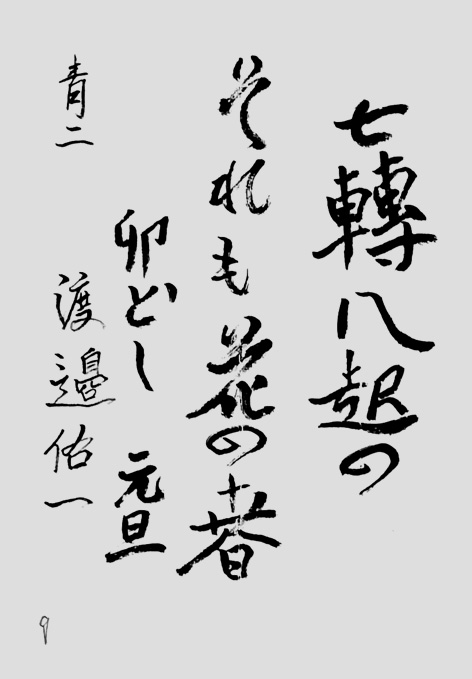 七轉八起の
それも花の春
卯どし 元旦
青二 渡邊佑一
9